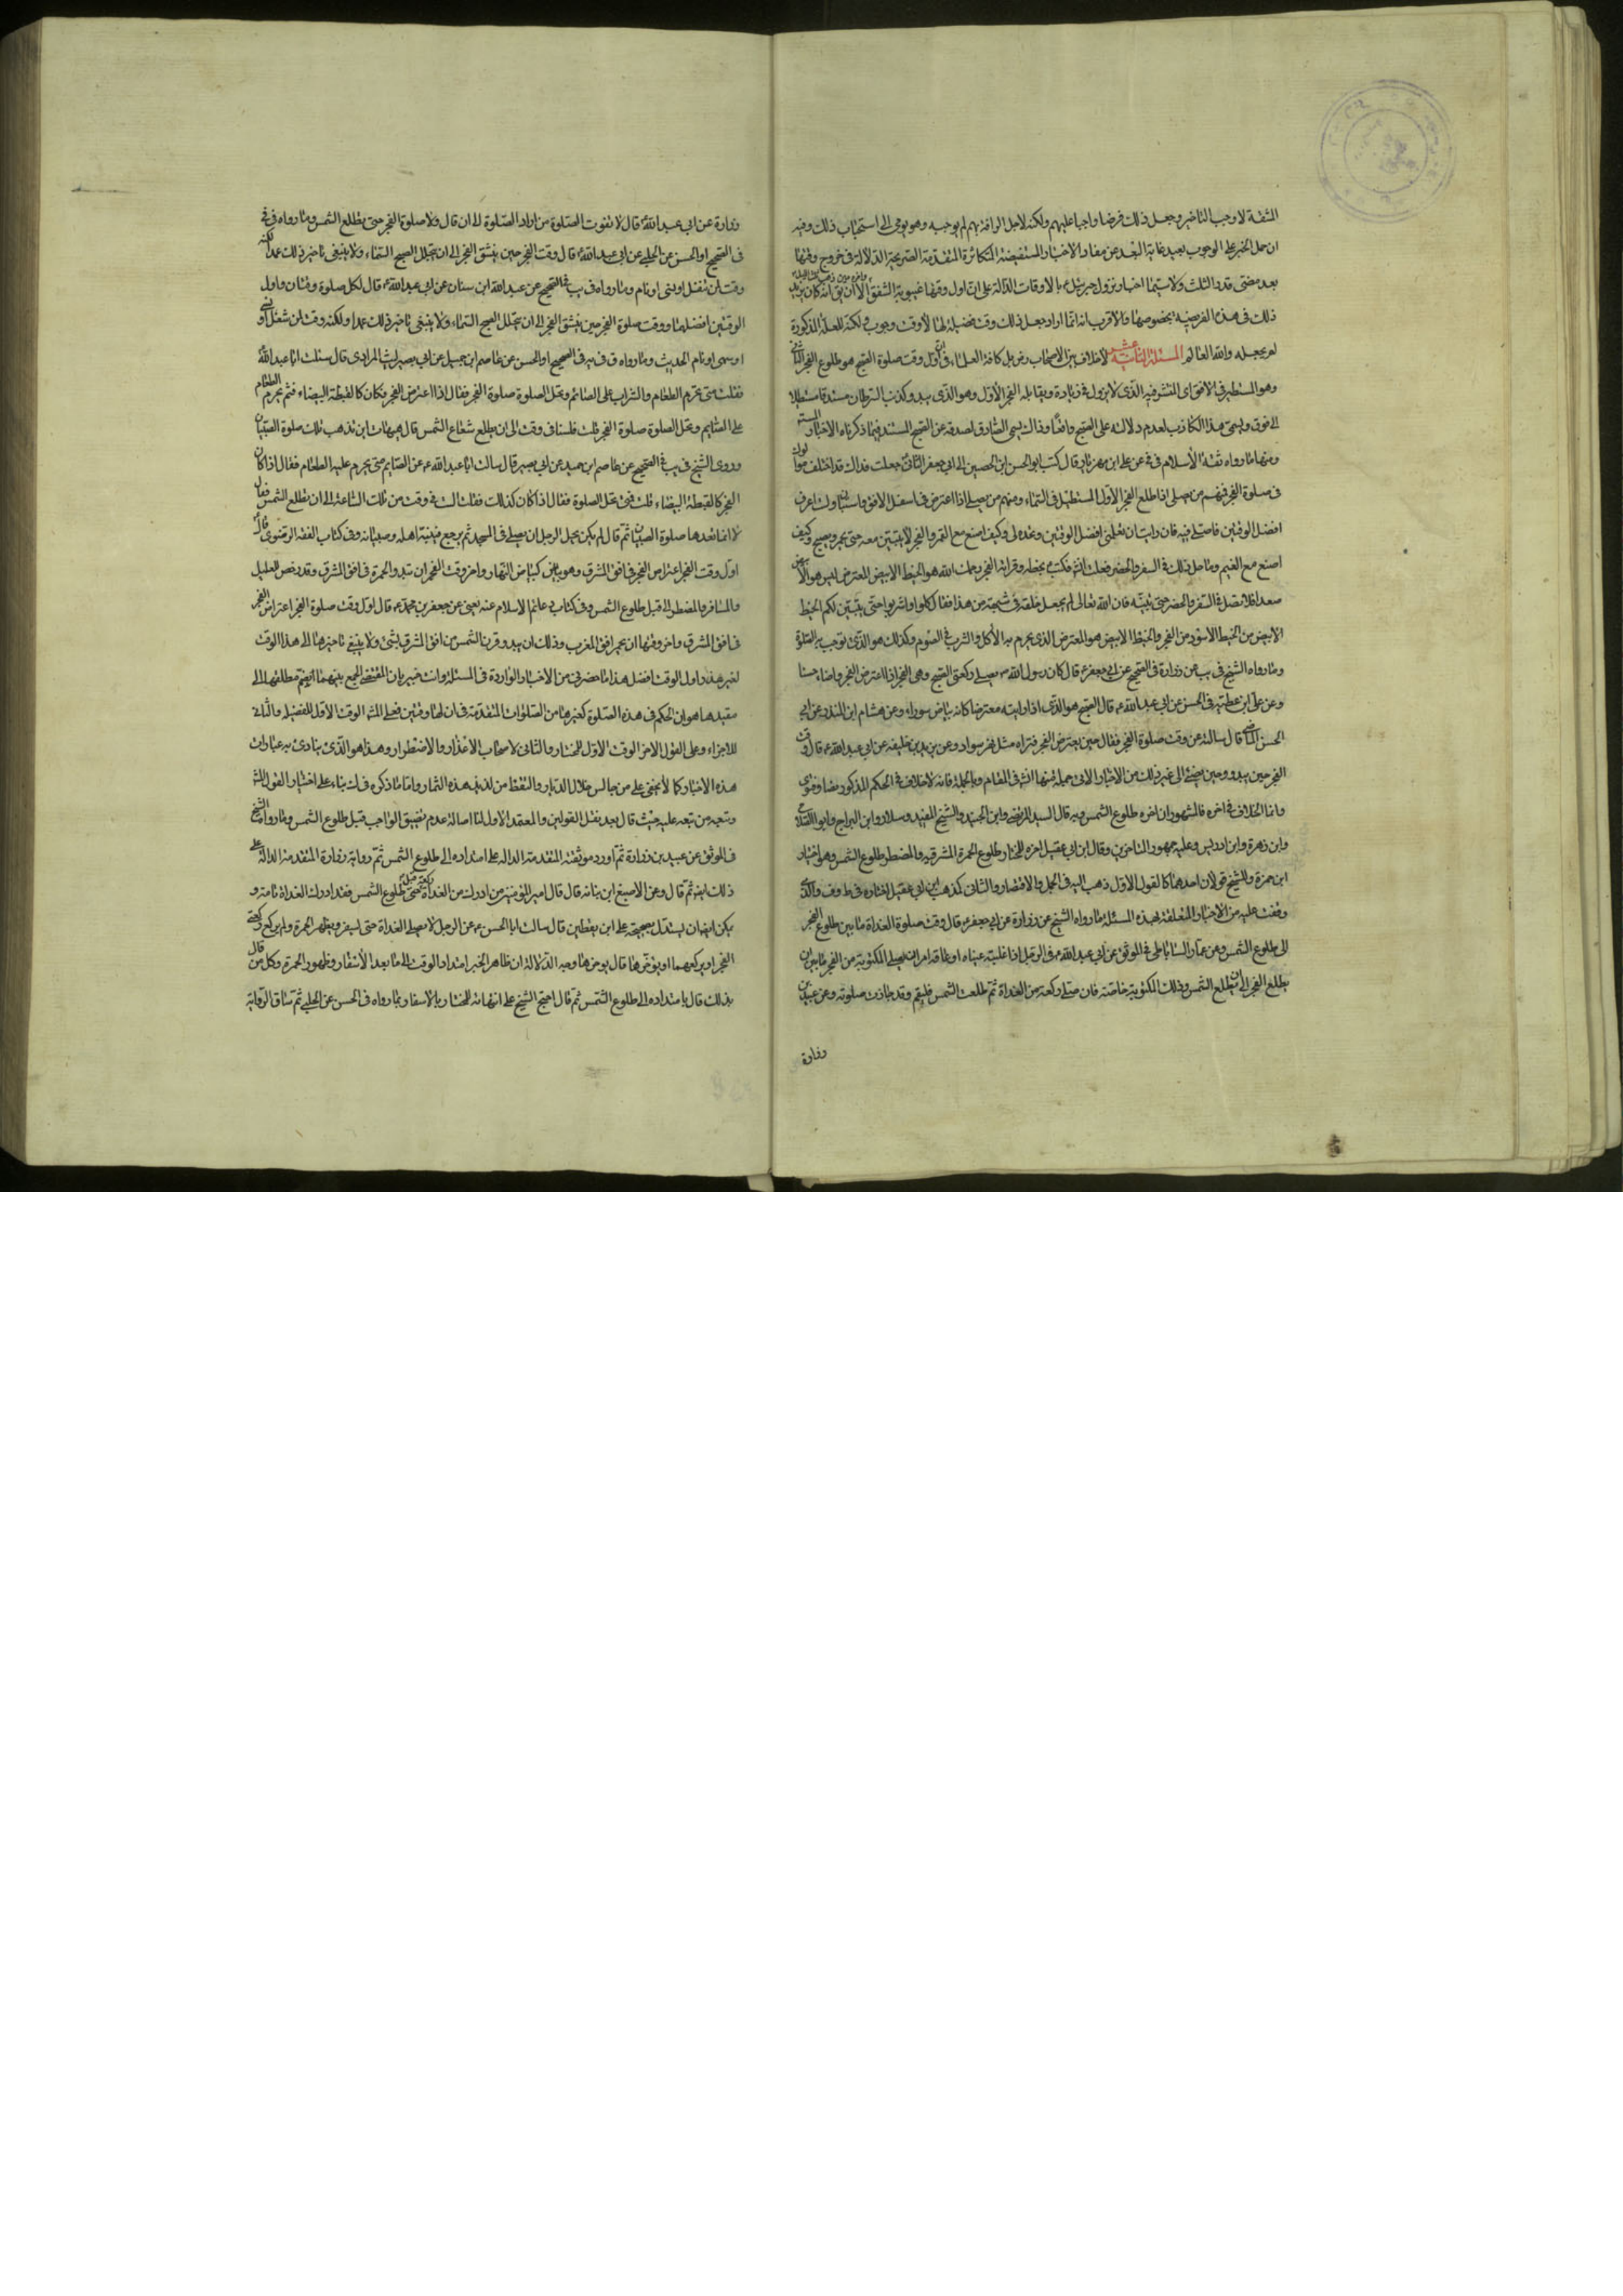 الشفة لاوجب التاخير وجعل ذلك فرضا واجبا عليهم ولكنه لاجل الرافة بهم لم يوجبه وهو يومي الى استحباب ذلك وفيه
ان حمل الخبر على الوجوب بعيد غاية البعد عن مفاد الاخبار المستفيضة المتكاثرة المتقدمة الصريحة الدلالة فى خروج وقتها
بعد مضى قدر الثلث ولا سيما اخبار نزول جبرئيل ع بالاوقات الدالة على ان اول وقتها غيبوبة الشفق الا ان يق انه كان
ذلك فى هذه الفريضة بخصوصها والاقرب انه انما اراد جعل ذلك وقت فضيلة لها لا وقت وجوب ولكنه للعلة المذكورة
لم يجعله والله العالم المسئلة الثانية عشر لا خلاف بين الاصحاب رض بل كافة العلماء فى ان اول وقت صلوة الصبح هو طلوع الفجر الثانى
وهو المستطير فى الافق اى المنتشر فيه الذى لا يزول فى زيادة ويقابله الفجر الاول وهو الذى يبدو كذنب السرحان مستدقا مستطيلا
الى فوق ويسمى هذا الكاذب لعدم دلالته على الصبح واقعا وذاك يسمى الصادق لصدقه عن الصبح المستند فيما ذكرناه الاخبار
ومنها ما رواه ثقة الاسلام فى فى عن على ابن مهزيار قال كتب ابو الحسن ابن الحصين الى ابى جعفر الثانى ع جعلت فداك قد اختلف موالوك
فى صلوة الفجر فمنهم من يصلى اذا طلع الفجر الاول المستطيل فى السماء ومنهم من يصلى اذا اعترض فى اسفل الافق واستبان ولست اعرف
افضل الوقتين فاصلى فيه فان رايت ان تعلمنى افضل الوقتين وتحده لى وكيف اصنع مع القمر والفجر لا يتبين معه حتى يحمر ويصبح وكيف
اصنع مع الغيم وما حد ذلك فى السفر والحضر فعلت انش فكتب ع بخطه وقراته الفجر رحمك الله هو الخيط الابيض المعترض ليس هو الابيض
صعدا فلا تصل فى السفر والحضر حتى تبينه فان الله تعالى لم يجعل خلقه فى شبهة من هذا فقال كلوا واشربوا حتى يتبين لكم الخيط
الابيض من الخيط الاسود من الفجر والخيط الابيض هو المعترض الذى يحرم به الاكل والشرب فى الصوم وكذلك هو الذى توجب به الصلوة
وما رواه الشيخ فى يب عن زرارة فى الصحيح عن ابى جعفر ع قال كان رسول الله ص يصلى ركعتى الصبح وهى الفجر اذا اعترض الفجر واضاء حسنا
وعن على ابن عطية فى الحسن عن ابى عبد الله ع قال الصبح هو الذى اذا رايته معترضا كانه بياض سوراء وعن هشام ابن الهذيل عن ابى
الحسن الماضى ع قال سالته عن وقت صلوة الفجر فقال حين يعترض الفجر فتراه مثل نهر سوراء وعن يزيد بن خليفه عن ابى عبد الله ع قال وقت
الفجر حين يبدو وحين يضىء الى غير ذلك من الاخبار الاتى جملة منها انش فى المقام وبالجملة فانه لا خلاف فى الحكم المذكور نصا وفتوى
وانما الخلاف فى اخره فالمشهور ان اخره طلوع الشمس وبه قال السيد المرتضى وابن الجنيد والشيخ المفيد وسلار وابن البراج وابو الصلاح
وابن زهرة وابن ادريس وعليه جمهور المتاخرين وقال ابن ابى عقيل اخره للمختار طلوع الحمرة المشرقية وللمضطر طلوع الشمس وهو اختيار
ابن حمزة وللشيخ قولان احدهما كالقول الاول ذهب اليه فى الجمل والاقتصار والثانى كمذهب ابن ابى عقيل اختاره فى ط وف والذى
وقفت عليه من الاخبار المتعلقة بهذه المسئلة ما رواه الشيخ عن زرارة عن ابى جعفر ع قال وقت صلوة الغداة ما بين طلوع الفجر
الى طلوع الشمس وعن عمار الساباطى فى الموثق عن ابى عبد الله ع فى الرجل اذا غلبته عيناه او عاقه امر ان يصلى المكتوبة من الفجر ما بين ان
يطلع الفجر الى ان تطلع الشمس وذلك المكتوبة خاصته فان صلى ركعة من الغداة ثم طلعت الشمس فليتم وقد جازت صلوته وعن عبيد بن
زرارة
زرارة عن ابى عبد الله ع قال لا تفوت الصلوة من اراد الصلوة الى ان قال ولا صلوة الفجر حتى تطلع الشمس وما رواه فى فى
فى الصحيح او الحسن عن الحلبى عن ابى عبد الله ع قال وقت الفجر حين ينشق الفجر الى ان يتجلل الصبح السماء ولا ينبغى تاخير ذلك عمدا لكنه
وقت لمن شغل او نسى او نام وما رواه فى يب فى الصحيح عن عبد الله ابن سنان عن ابى عبد الله ع قال لكل صلوة وقتان واول
الوقتين افضلهما ووقت صلوة الفجر حين ينشق الفجر الى ان يتجلل الصبح السماء ولا ينبغى تاخير ذلك عمدا ولكنه وقت لمن شغل او نسى
او سهى او نام الحديث وما رواه فى فى يه فى الصحيح او الحسن عن عاصم ابن حميد عن ابى بصير ليث المرادى قال سئلت ابا عبد الله ع
فقلت متى يحرم الطعام والشراب على الصائم وتحل الصلوة صلوة الفجر فقال اذا اعترض الفجر فكان كالقبطة البيضاء فثم يحرم الطعام
على الصايم وتحل الصلوة صلوة الفجر قلت فلسنا فى وقت الى ان يطلع شعاع الشمس قال هيهات اين تذهب تلك صلوة الصبيان
وروى الشيخ فى يب فى الصحيح عن عاصم ابن حميد عن ابى بصير قال سالت ابا عبد الله ع عن الصايم متى يحرم عليه الطعام فقال اذا كان
الفجر كالقبطة البيضاء قلت فمتى تحل الصلوة فقال اذا كان كذلك فقلت الست فى وقت من تلك الساعة الى ان تطلع الشمس فقال
لا انما نعدها صلوة الصبيان ثم قال لم يكن يحمد الرجل ان يصلى فى المسجد ثم يرجع فينبه اهله وصبيانه وفى كتاب الفقه الرضوى قال ع
اول وقت الفجر اعتراض الفجر فى افق المشرق وهو بياض كبياض النهار واخر وقت الفجر ان تبدو الحمرة فى افق المشرق وقد رخص للعليل
والمسافر والمضطر الى قبل طلوع الشمس وفى كتاب دعائم الاسلام عنه يعنى عن جعفر بن محمد ع قال اول وقت صلوة الفجر اعتراض الفجر
فى افق المشرق واخر وقتها ان يحمر افق المغرب وذلك ان يبدو قرن الشمس من افق المشرق بشىء ولا ينبغى تاخيرها الى هذا الوقت
لغير عذر واول الوقت افضل هذا ما حضرنى من الاخبار الواردة فى المسئلة وانت خبير بان المقتضى الجمع بينهما بضم مطلقها الى
مقيدها هو ان الحكم فى هذه الصلوة كغيرها من الصلوات المتقدمة فى ان لها وقتين فعلى المش الوقت الاول للفضيلة والثانى
للاجزاء وعلى القول الاخر الوقت الاول للمختار والثانى لاصحاب الاعذار والاضطرار وهذا هو الذى ينادى به عبارات
هذه الاخبار كما لا يخفى على من جالس خلال الديار والتقط من لذيذ هذه الثمار واما ما ذكره فى ك بناء على اختيار القول المش
وتبعه من تبعه عليه حيث قال بعد نقل القولين والمعتمد الاول لنا اصالة عدم تضييق الواجب قبل طلوع الشمس وما رواه الشيخ
فى الموثق عن عبيد بن زرارة ثم اورد موثقته المتقدمة الدالة على امتداده الى طلوع الشمس ثم رواية زرارة المتقدمة الدالة على
ذلك ايضا ثم قال وعن الاصبغ ابن نباتة قال قال امير المؤمنين من ادرك من الغداة ركعة قبل طلوع الشمس فقد ادرك الغداة تامة و
يمكن ايضا ان يستدل بصحيحة على ابن يقطين قال سالت ابا الحسن ع عن الرجل لا يصلى الغداة حتى يسفر ويظهر الحمرة ولم يركع ركعتى
الفجر ايركعهما او يؤخرهما قال يؤخرهما وجه الدلالة ان ظاهر الخبر امتداد الوقت الى ما بعد الاسفار وظهور الحمرة وكل من قال
بذلك قال بامتداده الى طلوع الشمس ثم قال احتج الشيخ على انتهائه للمختار بالاسفار بما رواه فى الحسن عن الحلبى ثم ساق الرواية